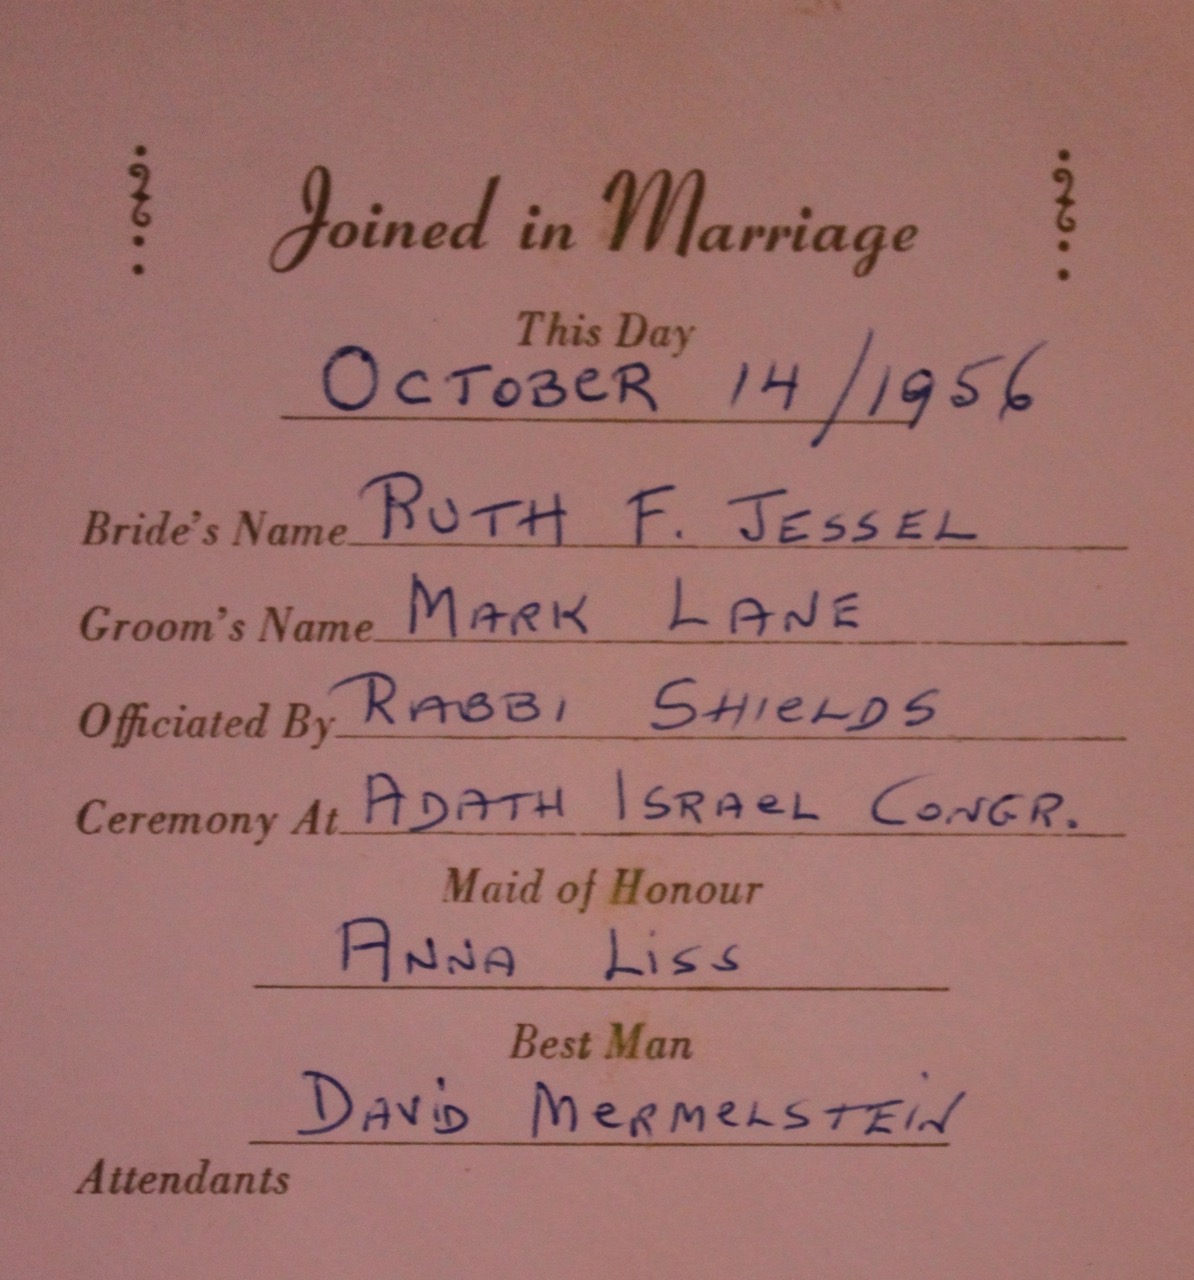 Joined in Marriage
This Day
OCTOBER 14/1956
Bride's Name RUTH F. JESSEL
Groom's Name MARK LANE
Officiated By RABBI SHIELDS
Ceremony At ADATH ISRAEL CONGR.
Maid of Honour
ANNA LISS
Best Man
DAVID MERMELSTEIN
Attendants